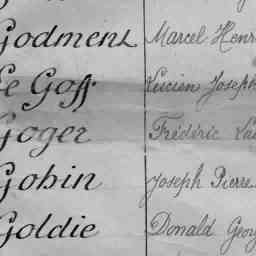 Godment Marcel Henr
Le Goff Lucien Joseph
Goger Frédéric
Gohin Joseph Pierre
Goldie Donald Geor